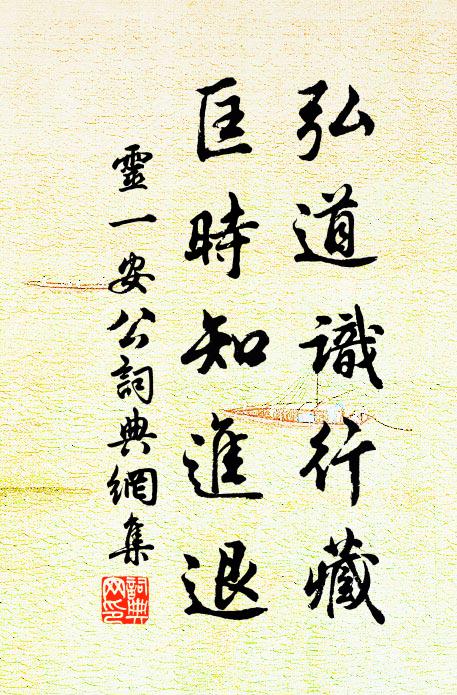 弘道識行藏
匡時知進退
靈一安公詞典網集
詞典網印